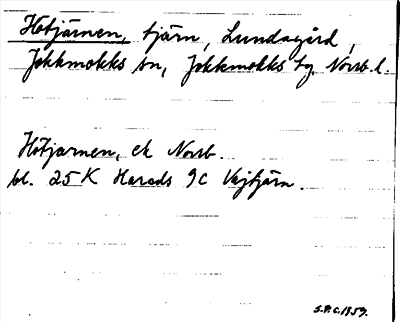 Hötjärnen, tjärn, Lundagård,
Jokkmokks sn, Jokkmokks tg. Norrb. l.
Hötjärnen, ek Norrb.
bl. 25 K Harads 9c Vajtjärn.
S.P.C. 1959.